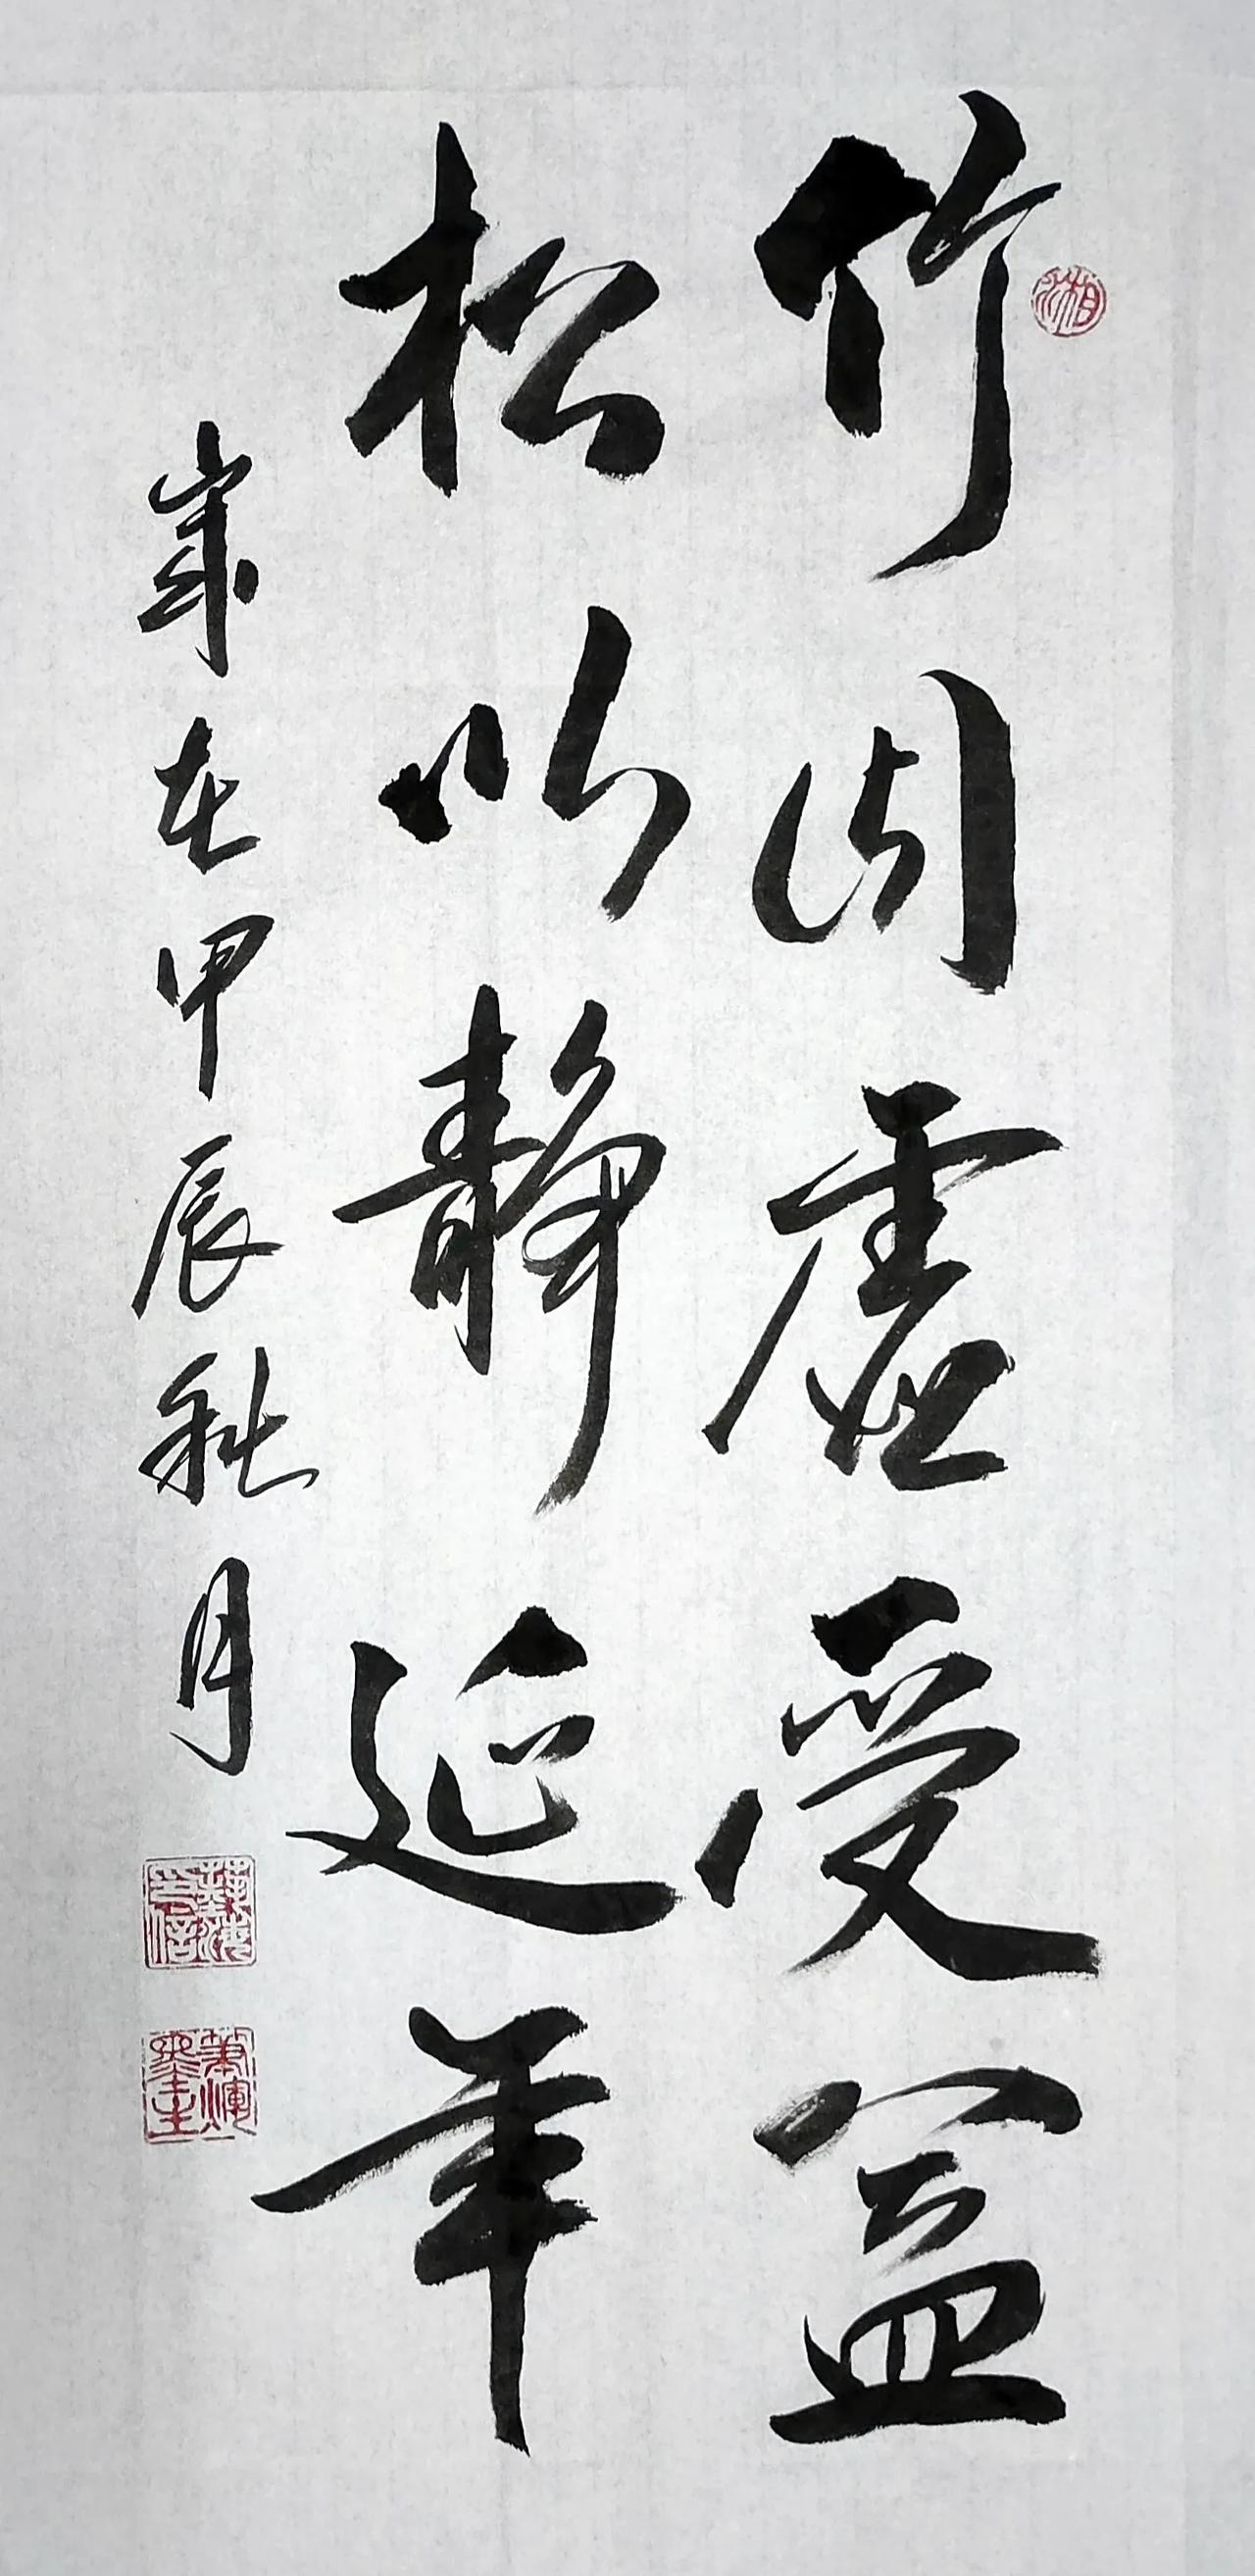 竹因虛受益
松以静延年
歲在甲辰秋月
湘